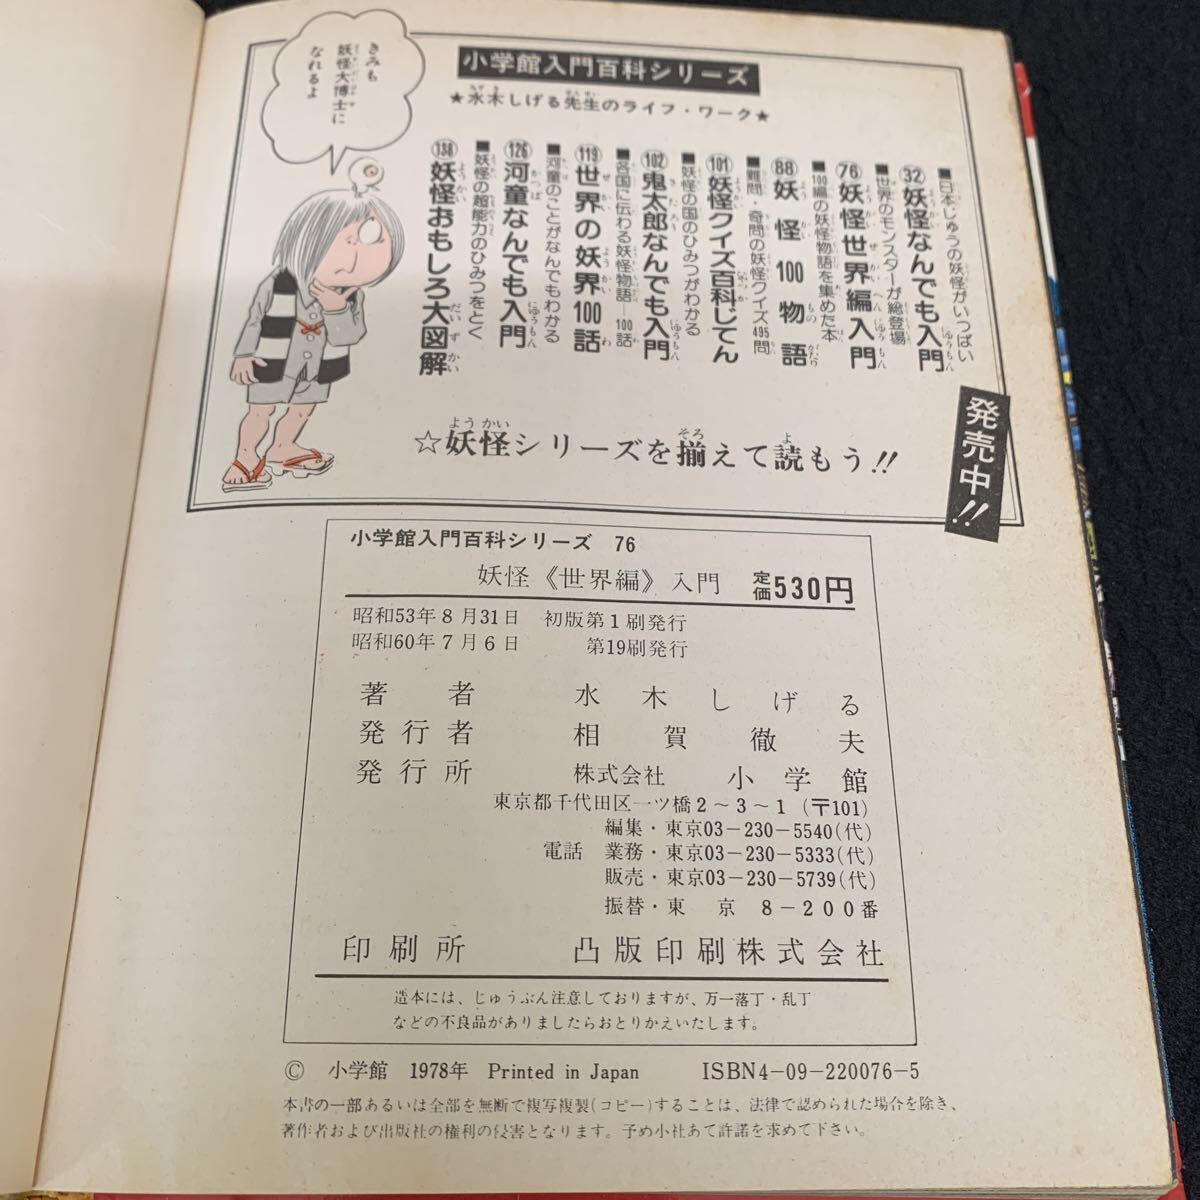 きみも
妖怪大博士に
なれるよ
小学館入門百科シリーズ
★水木しげる先生のライフ・ワーク★
■日本じゅうの妖怪がいっぱい
㉜妖怪なんでも入門
■世界のモンスターが総登場
76妖怪世界編入門
■100編の妖怪物語を集めた本
88妖怪100物語
■難問・奇問の妖怪クイズ495問
101妖怪クイズ百科じてん
■妖怪の国のひみつがわかる
102鬼太郎なんでも入門
■各国に伝わる妖怪物語―100話
119世界の妖界100話
■河童のことがなんでもわかる
126河童なんでも入門
■妖怪の超能力のひみつをとく
138妖怪おもしろ大図解
☆妖怪シリーズを揃えて読もう!!
発売中!!
小学館入門百科シリーズ 76
妖怪《世界編》入門 定価530円
昭和53年8月31日 初版第1刷発行
昭和60年7月6日 第19刷発行
著者 水木しげる
発行者 相賀徹夫
発行所 株式会社 小学館
東京都千代田区一ツ橋2～3～1(〒101)
編集・東京03－230－5540(代)
電話 業務・東京03－230－5333(代)
販売・東京03－230－5739(代)
振替・東京 8－200番
印刷所 凸版印刷株式会社
造本には、じゅうぶん注意しておりますが、万一落丁・乱丁
などの不良品がありましたらおとりかえいたします。
© 小学館 1978年 Printed in Japan ISBN4-09-220076-5
本書の一部あるいは全部を無断で複写複製(コピー)することは、法律で認められた場合を除き、
著作者および出版社の権利の侵害となります。予め小社あて許諾を求めて下さい。